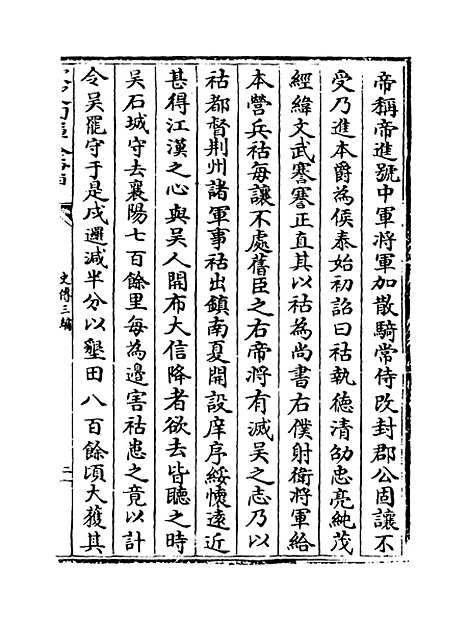 帝稱帝進號中軍將軍加散騎常侍改封郡公固讓不
受乃進本爵為侯泰始初詔曰祜執德清劭忠亮純茂
經緯文武謇謇正直其以祜為尚書右僕射衛將軍給
本營兵祜每讓不處舊臣之右帝將有滅吳之志乃以
祜都督荆州諸軍事祜出鎮南夏開設庠序綏懷遠近
甚得江漢之心與吳人開布大信降者欲去皆聽之時
吳石城守去襄陽七百餘里每為邊害祜患之竟以計
令吳罷守于是戍邏減半分以墾田八百餘頃大獲其
史傳三編